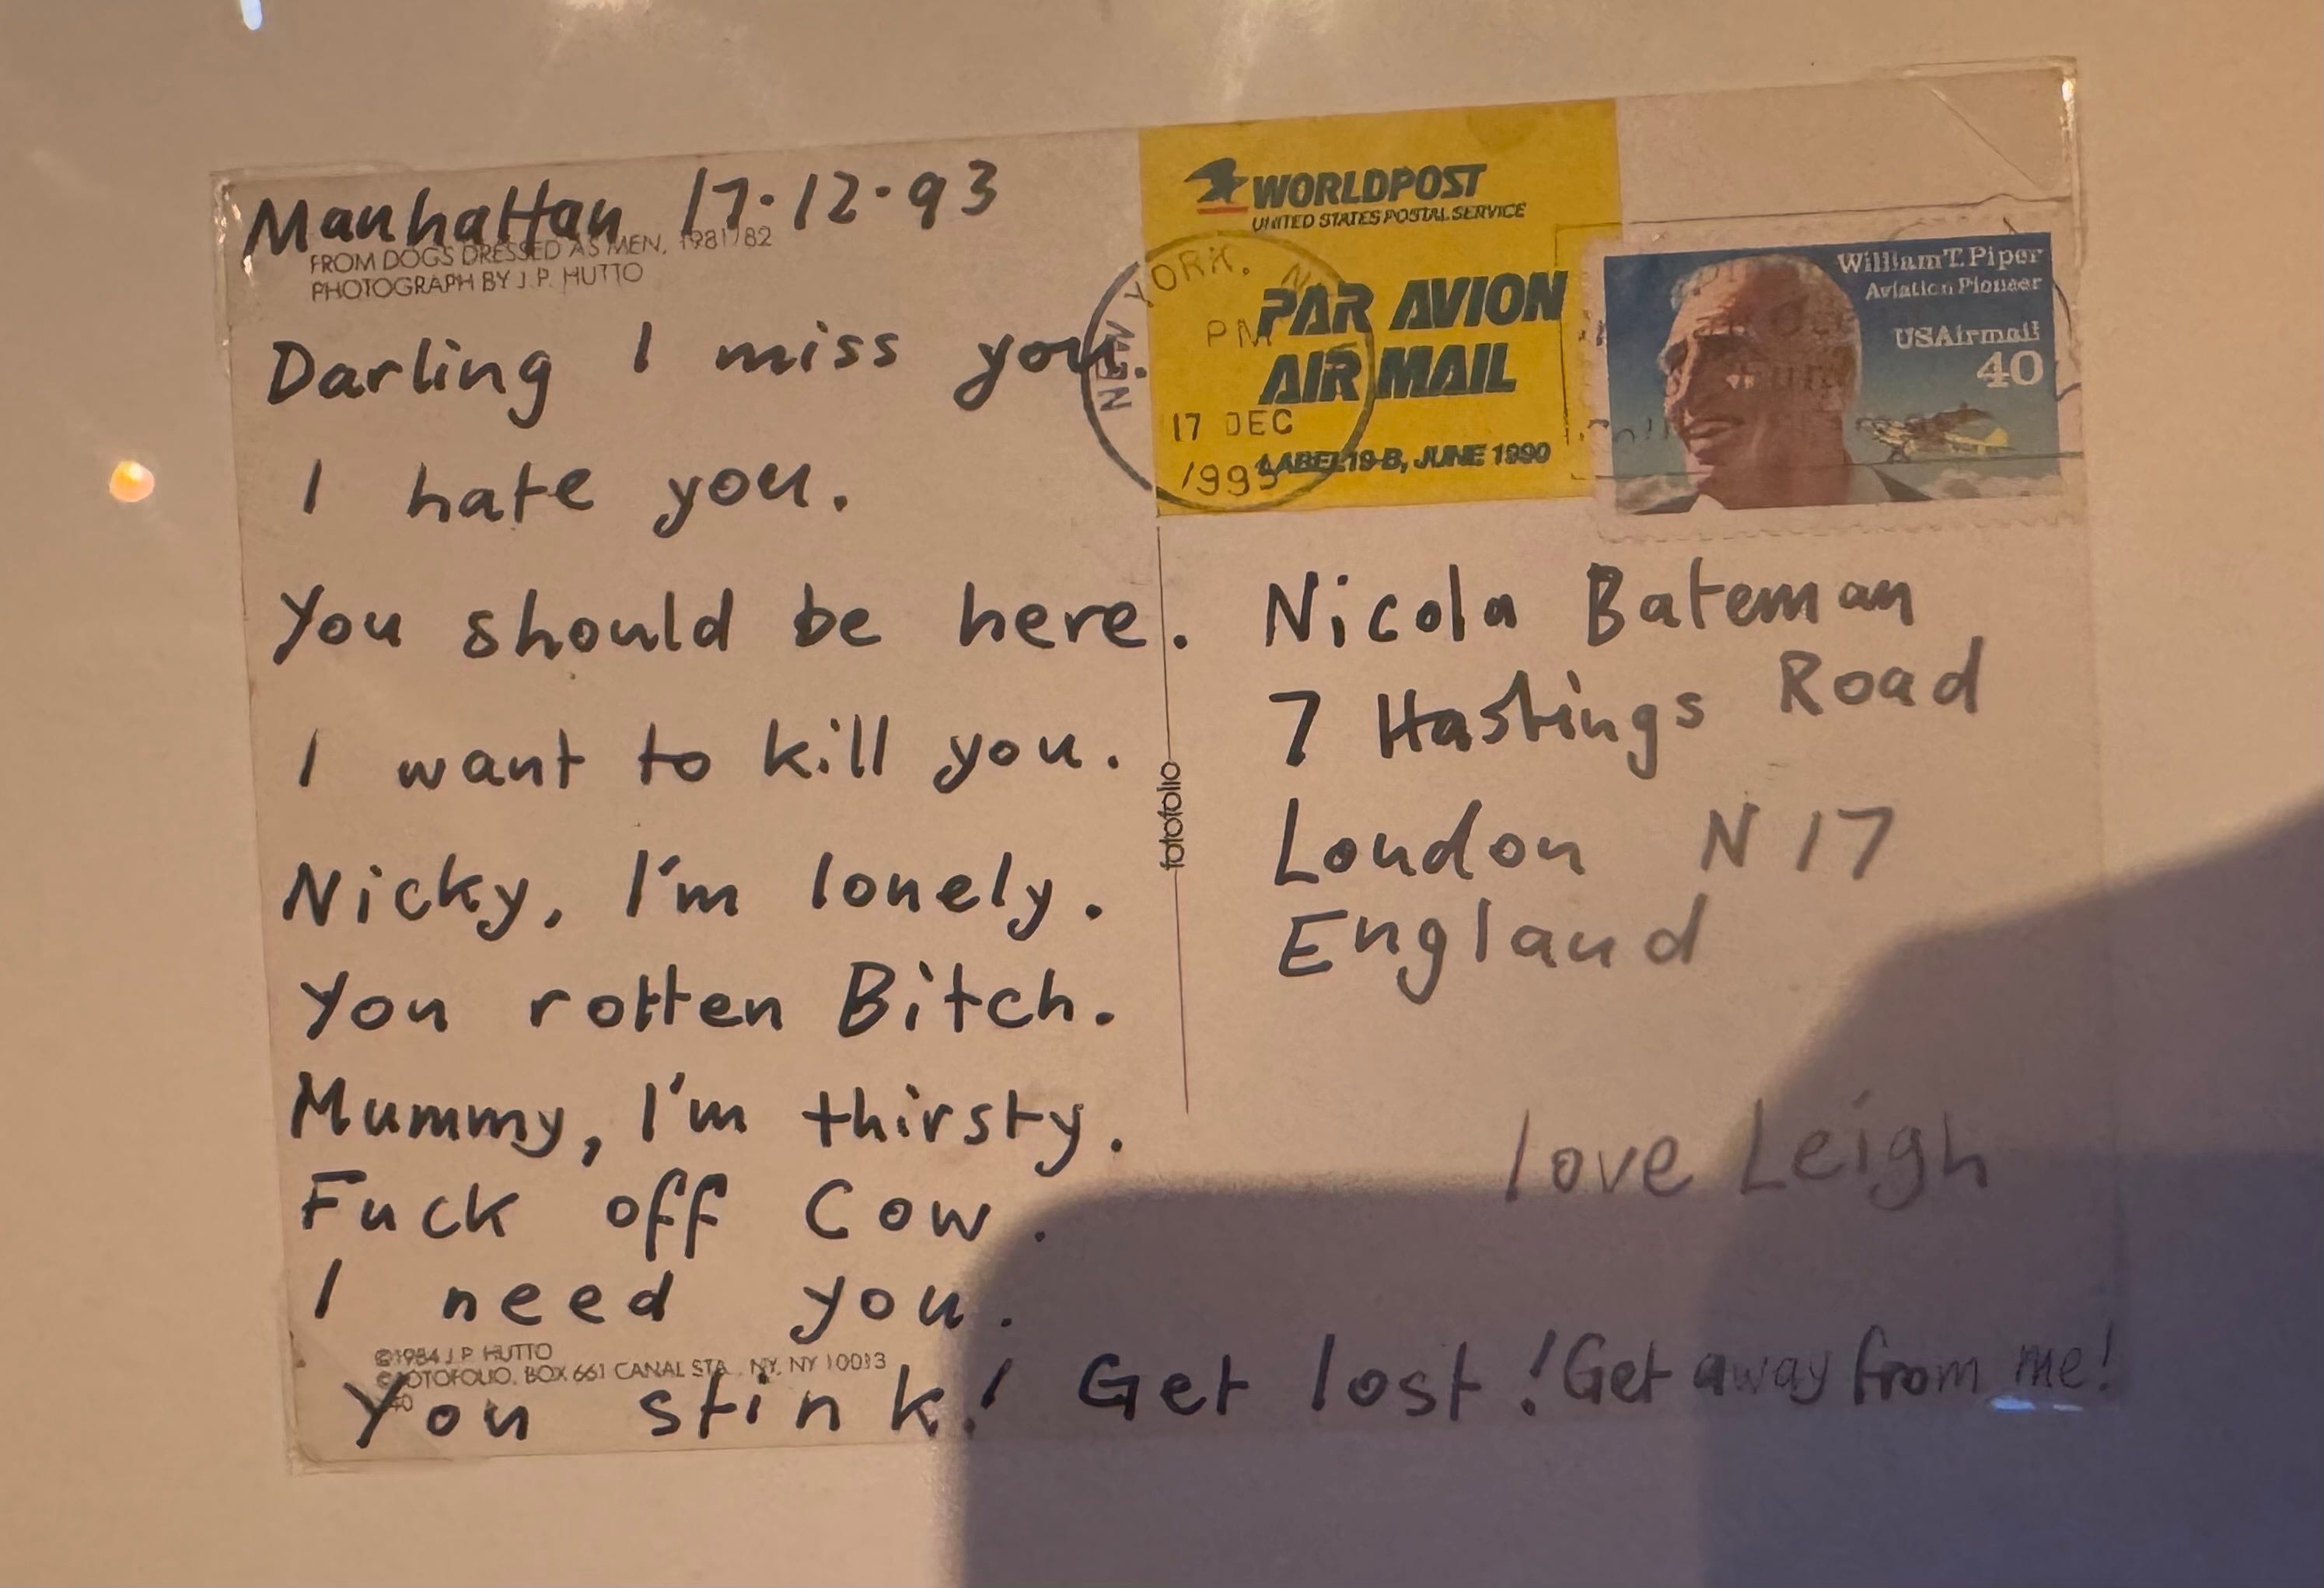 Manhattan 17·12·93
FROM DOGS DRESSED AS MEN, 1981/82
PHOTOGRAPH BY J.P. HUTTO
Darling I miss you.
I hate you.
You should be here.
I want to kill you.
Nicky, I'm lonely.
You rotten Bitch.
Mummy, I'm thirsty.
Fuck off Cow.
I need you.
©1984 J.P. HUTTO
FOTOFOLIO, BOX 661 CANAL STA., NY, NY 10013
You stink! Get lost! Get away from me!
fotofolio
WORLDPOST
UNITED STATES POSTAL SERVICE
PAR AVION
AIR MAIL
LABEL 19-B, JUNE 1990
NEW YORK, N
PM
17 DEC
1993
William T. Piper
Aviation Pioneer
USAirmail
40
Nicola Bateman
7 Hastings Road
London N17
England
love Leigh